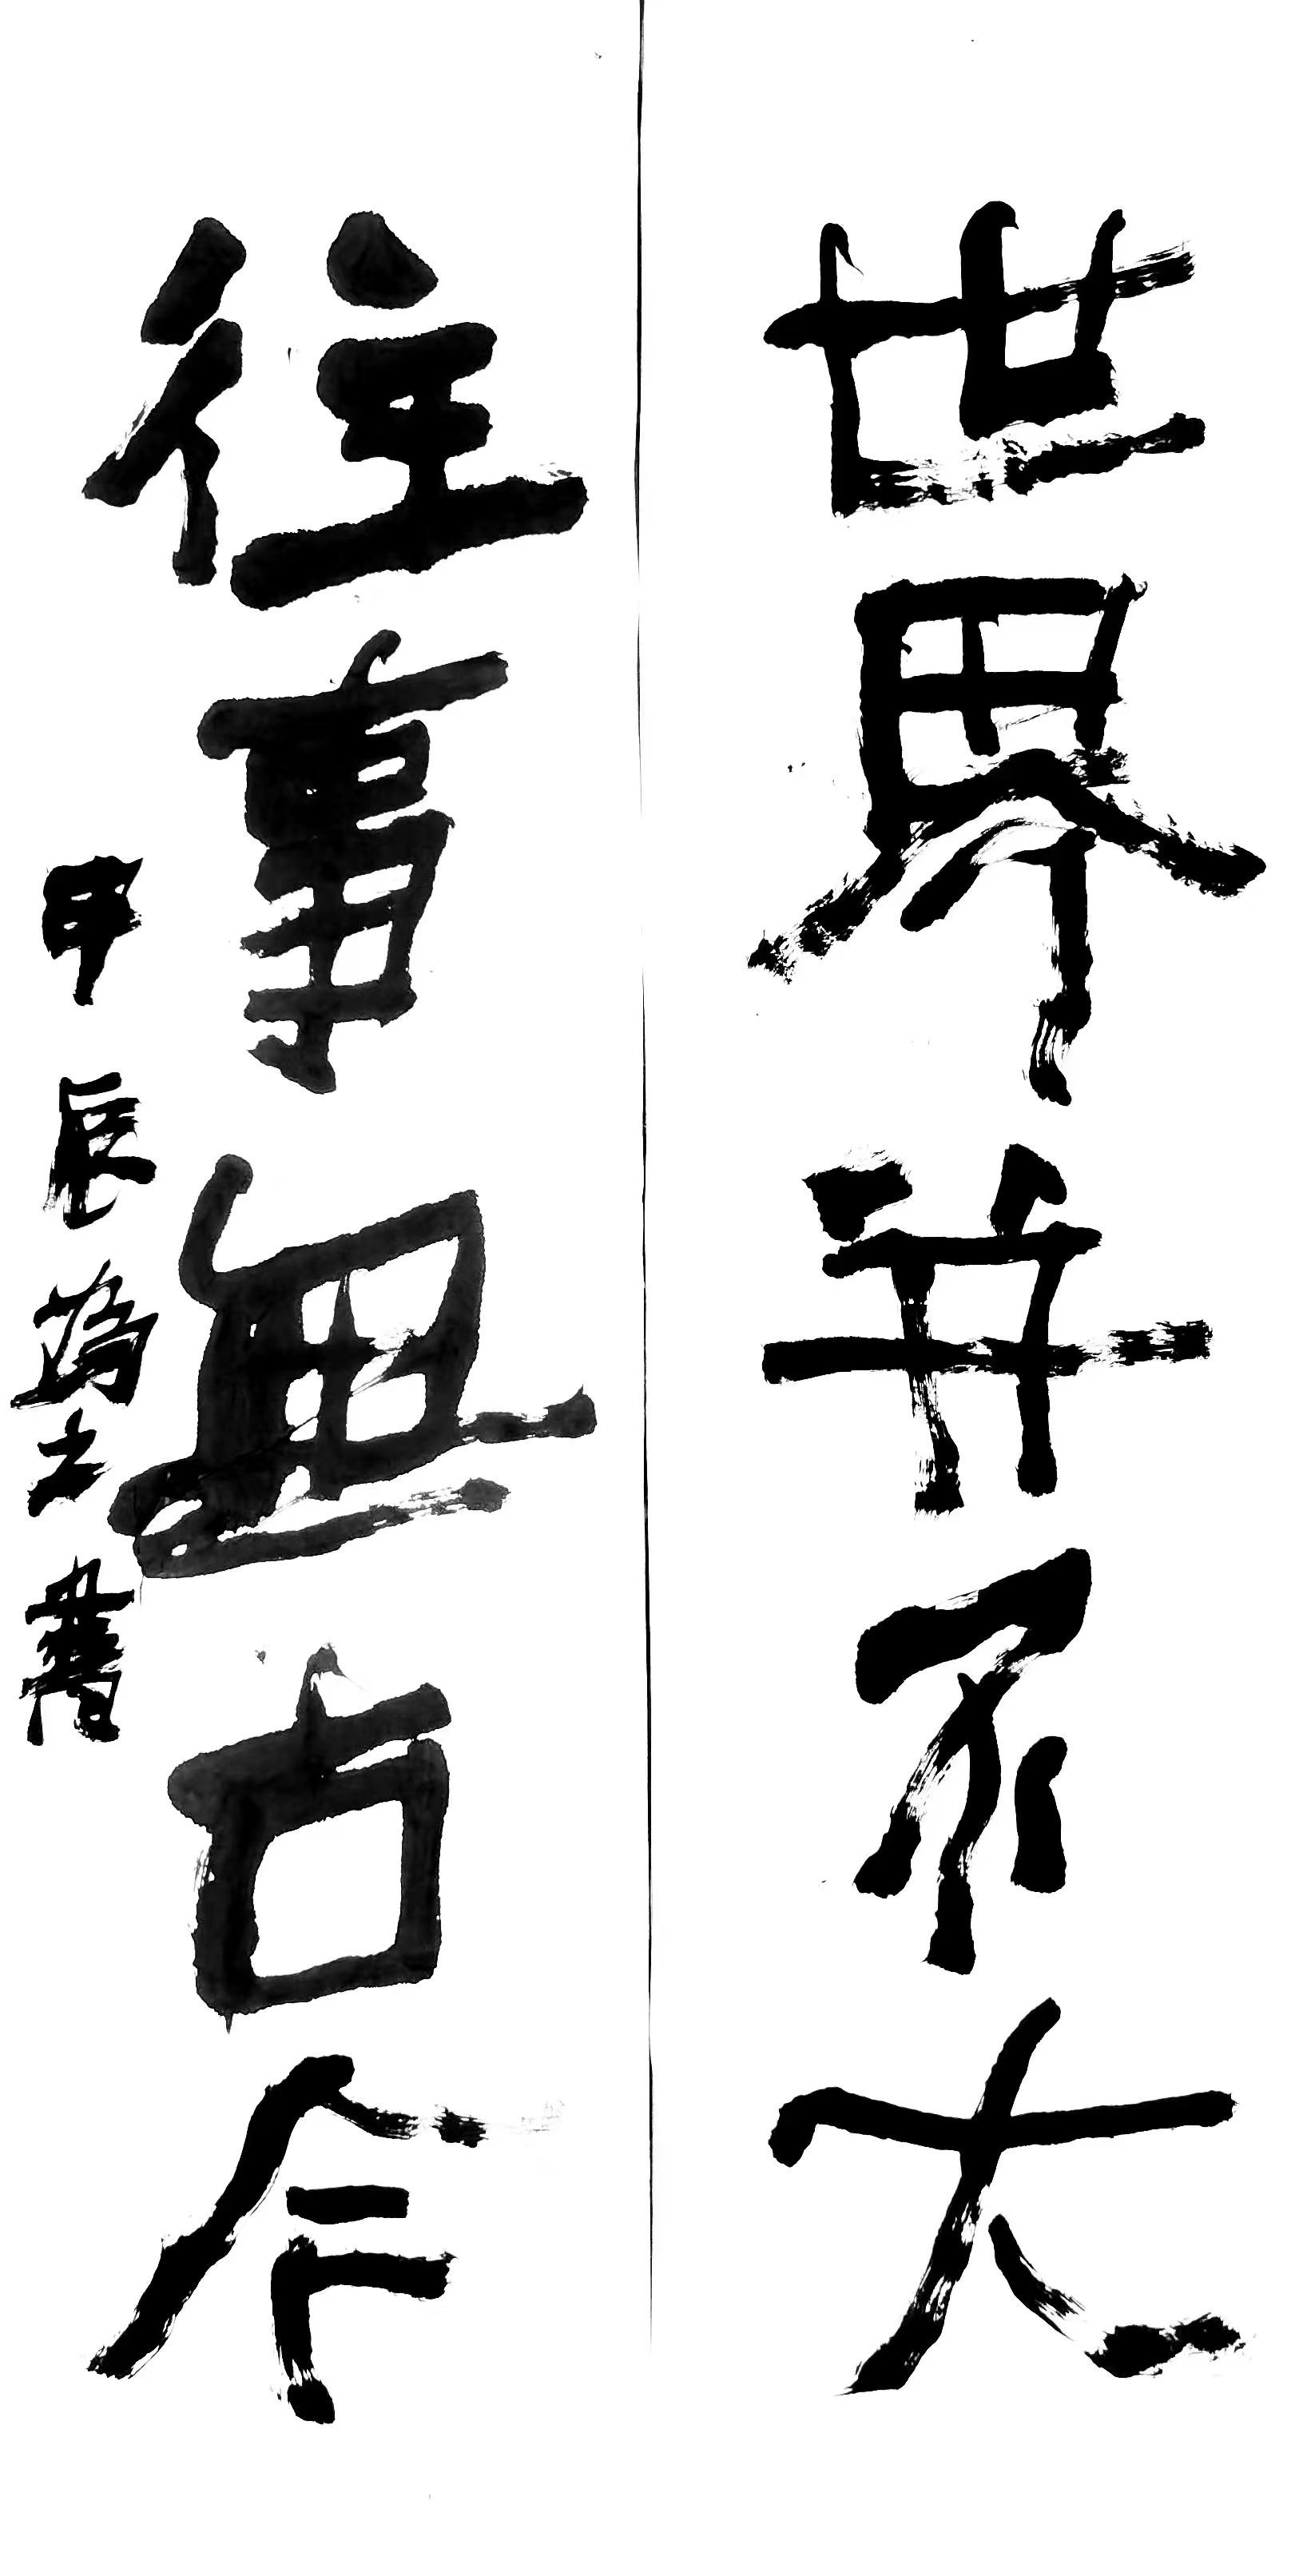 世界并不大
往事無古今
甲辰為之書